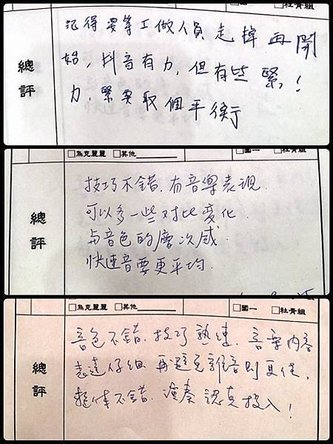 記得要等工做人員走掉再開
始,抖音有力,但有些緊!
力,緊要取個平衡
總評
□烏克麗麗 □其他 □國一 □社青組
技巧不錯.有音樂表現.
可以多一些对比变化
与音色的層次感.
快速音要更平均.
總評
□烏克麗麗 □其他 □國一 □社青組
音色不錯.技巧熟速.音樂內容
表達仔細.再避免雜音則更佳.
整体不錯.演奏認真投入!
總評